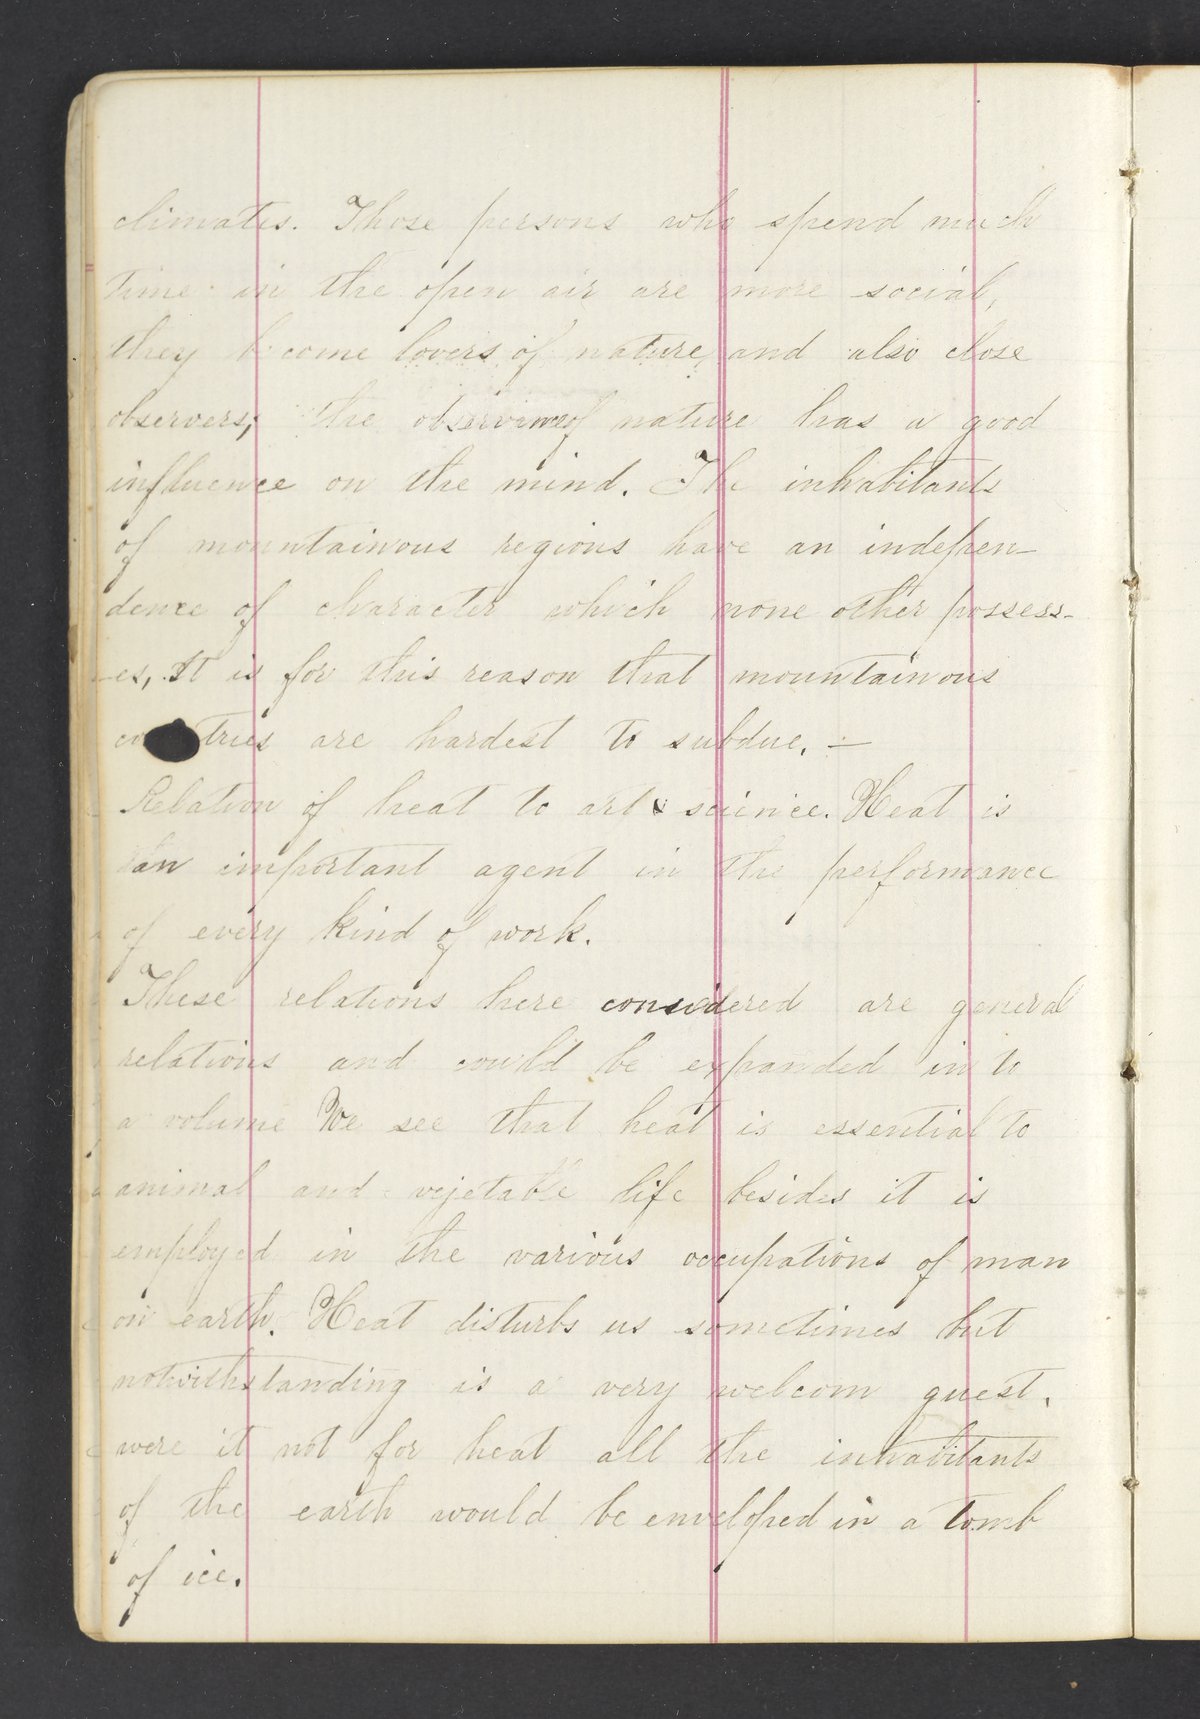 climates. Those persons who spend much
time in the open air are more social,
they become lovers of nature, and also close
observers; the observance of nature has a good
influence on the mind. The inhabitants
of mountainous regions have an indepen-
dence of character which none other possess-
-es, It is for this reason that mountainous
countries are hardest to subdue. —
Relation of heat to art & science. Heat is
an important agent in the performance
of every kind of work.
These relations here considered are general
relations and could be expanded in to
a volume We see that heat is essential to
animal and vejetable life besides it is
employed in the various occupations of man
on earth. Heat disturbs us sometimes but
notwithstanding is a very welcom guest.
were it not for heat all the inhabitants
of the earth would be enveloped in a tomb
of ice.